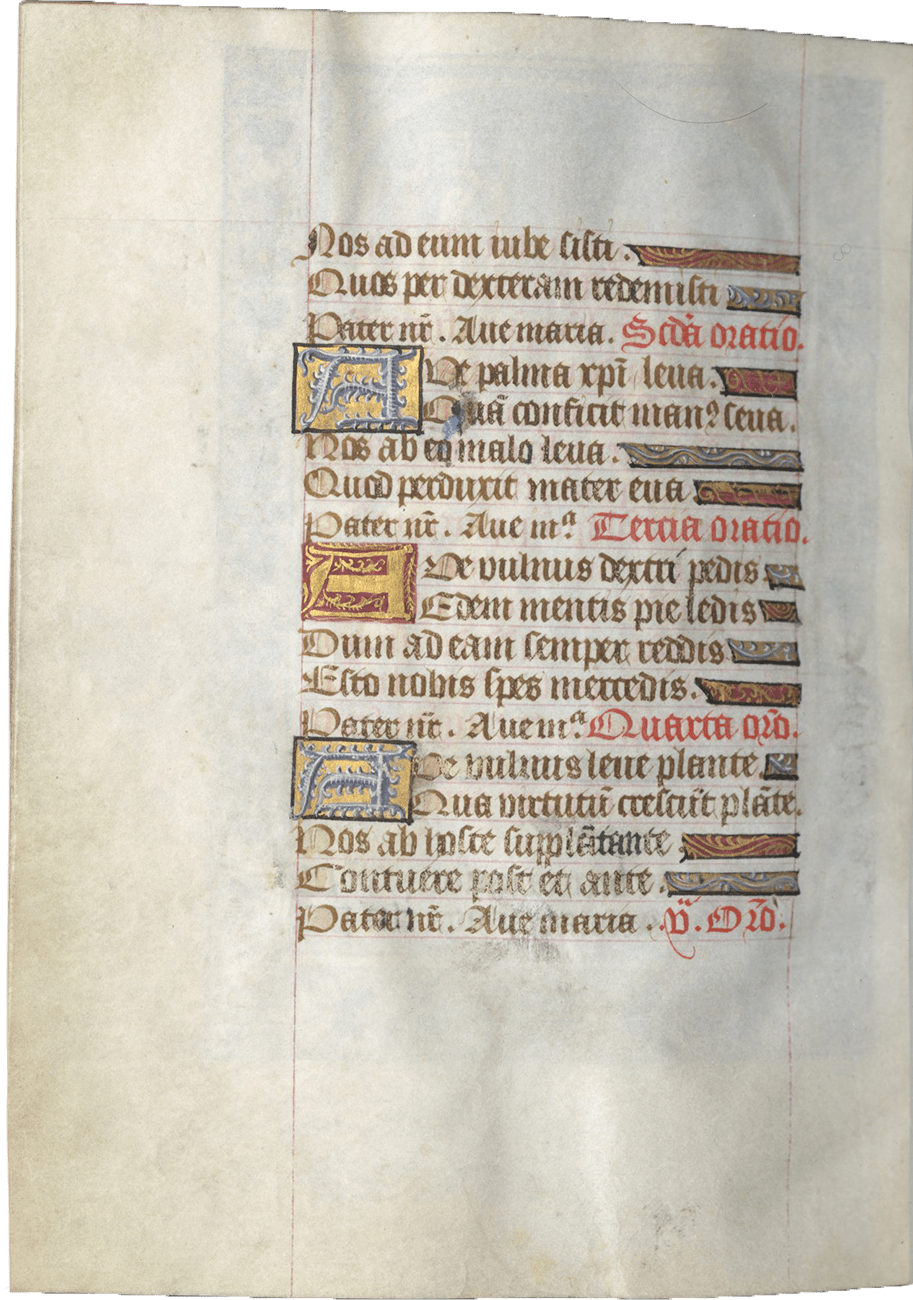 Nos ad eum iube sisti .
Quos per dexteram redemisti
Pater nr̄ . Aue maria. Scd̄a oratio.
Aue palma xp̄i leua .
Quā conficit manꝰ seua .
Nos ab eo malo leua .
Quod perduxit mater eua
Pater nr̄ . Aue mᵃ. Tercia oratio.
Aue vulnus dextri pedis
Edem mentis pie ledis
Dum ad eam semper reddis
Esto nobis spes mercedis.
Pater nr̄ . Aue mᵃ. Quarta or̄o.
Aue vulnus leue plante
Qua virtutū crescūt plāte.
Nos ab hoste supplātante
Contuere post et ante .
Pater nr̄ . Aue maria . .v̈. Or̄o.